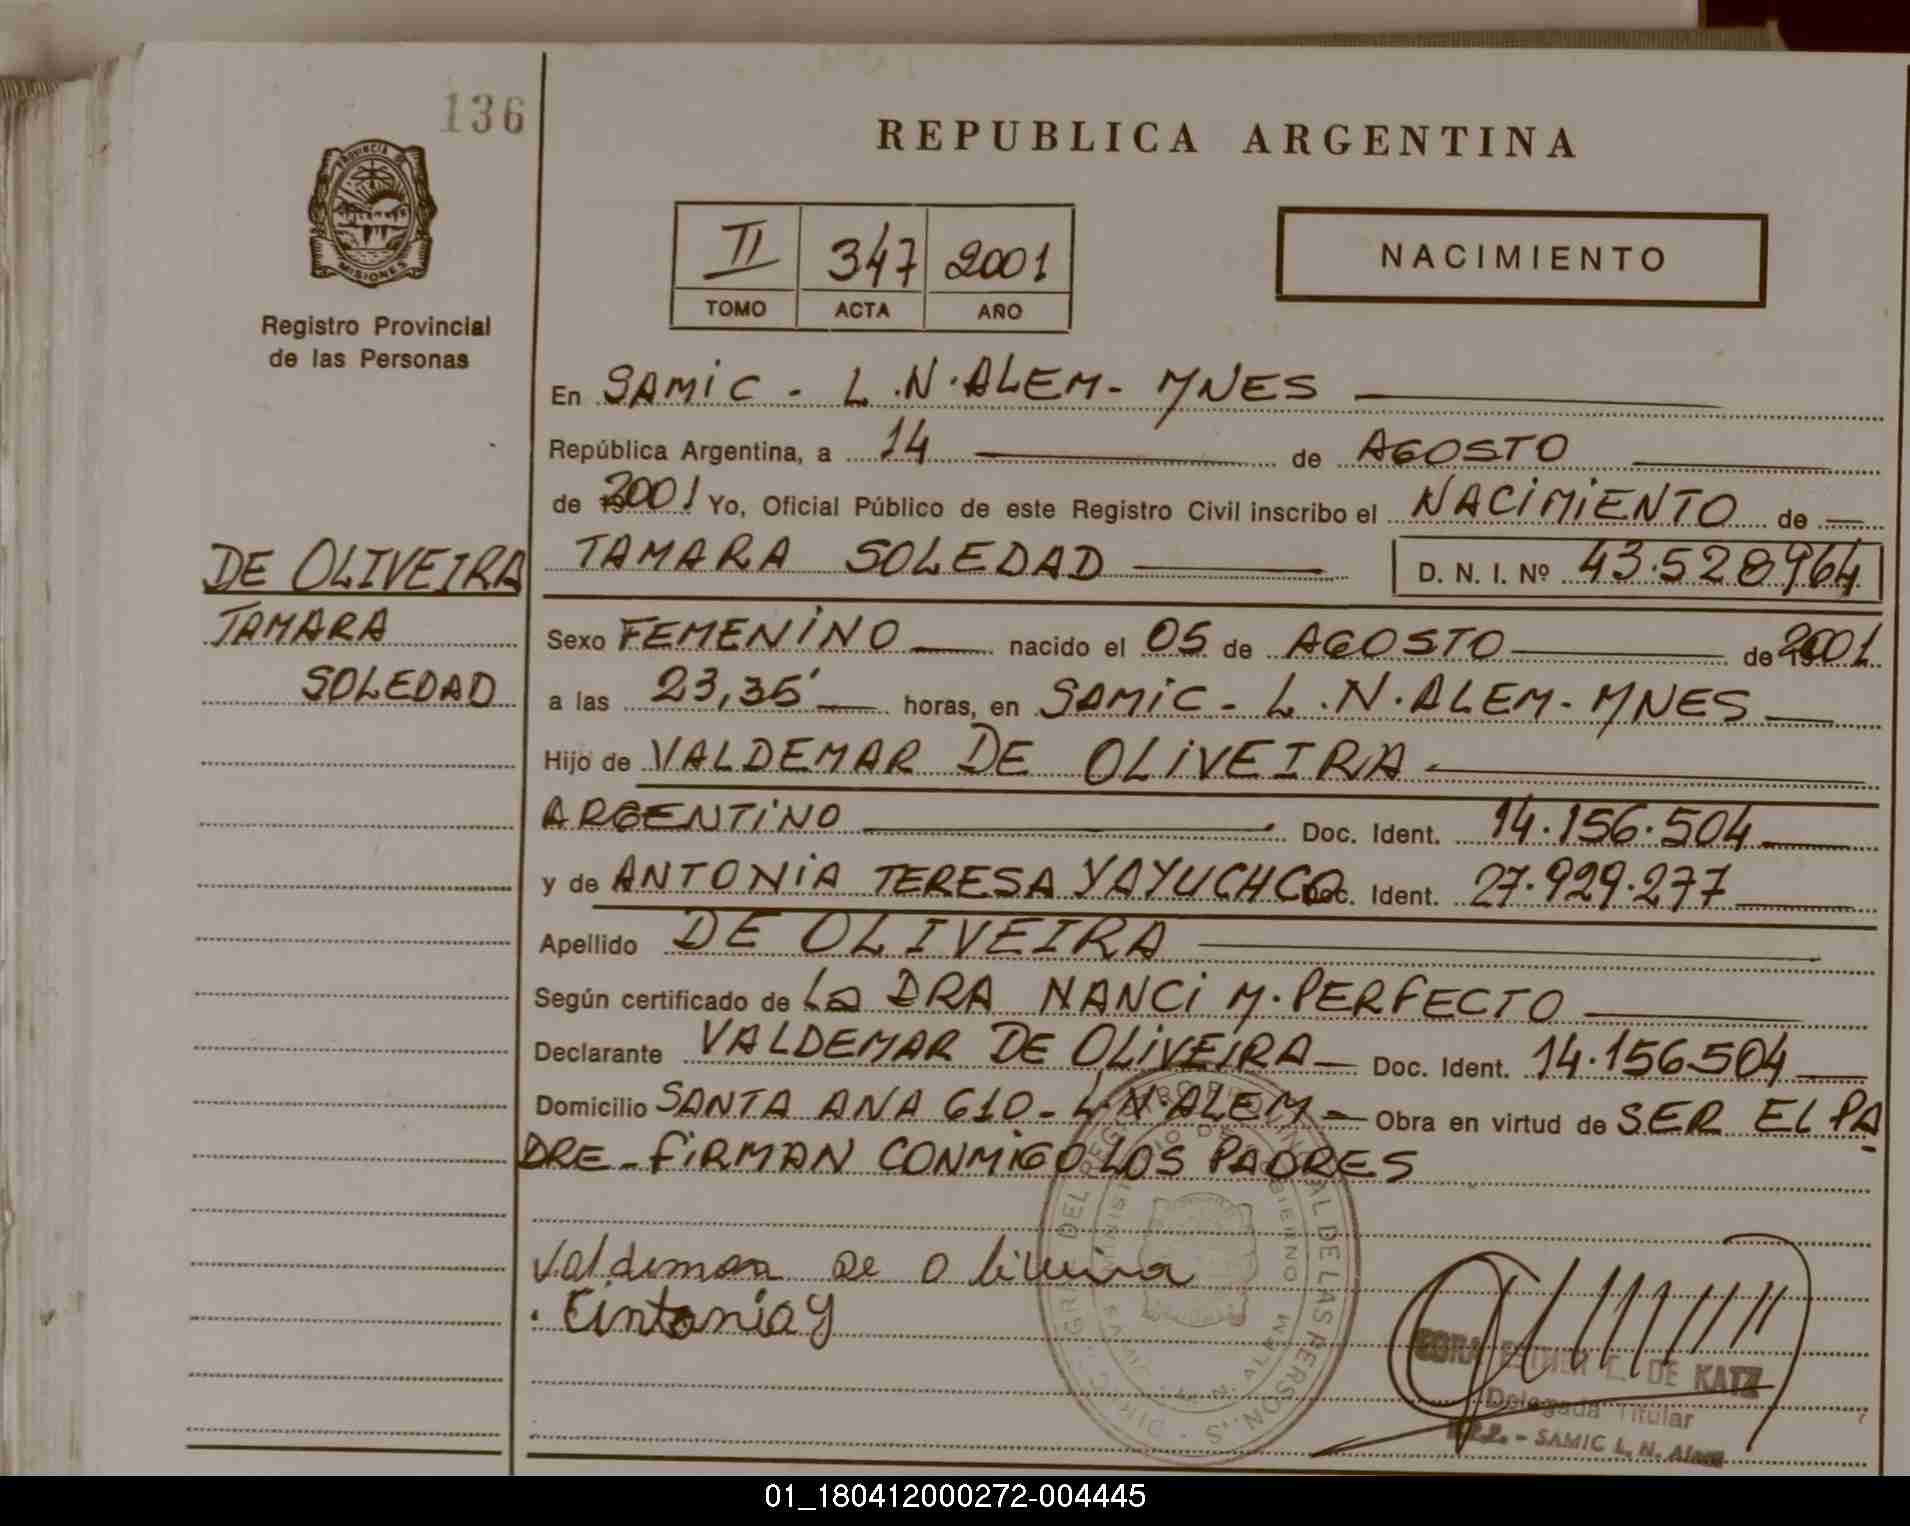 136
REPUBLICA ARGENTINA
PROVINCIA DE
MISIONES
Registro Provincial
de las Personas
II 347 2001
TOMO ACTA AÑO
NACIMIENTO
En SAMIC - L.N.ALEM- MNES
República Argentina, a 14 de AGOSTO
de 2001 Yo, Oficial Público de este Registro Civil inscribo el NACIMIENTO de
DE OLIVEIRA
TAMARA
SOLEDAD
TAMARA SOLEDAD D. N. I. Nº 43.528964
Sexo FEMENINO nacido el 05 de AGOSTO de 2001
a las 23,35' horas, en SAMIC - L.N.ALEM-MNES
Hijo de VALDEMAR DE OLIVEIRA
ARGENTINO Doc. Ident. 14.156.504
y de ANTONIA TERESA YAYUCHCO Doc. Ident. 27.929.277
Apellido DE OLIVEIRA
Según certificado de La DRA NANCI M. PERFECTO
Declarante VALDEMAR DE OLIVEIRA Doc. Ident. 14.156504
Domicilio SANTA ANA 610 - L.N.ALEM - Obra en virtud de SER EL PA
DRE - FIRMAN CONMIGO LOS PADRES
Valdemar de Oliveira
Antonia y
DE KATZ
Delegada Titular
SAMIC L. N. Alem
01_180412000272-004445